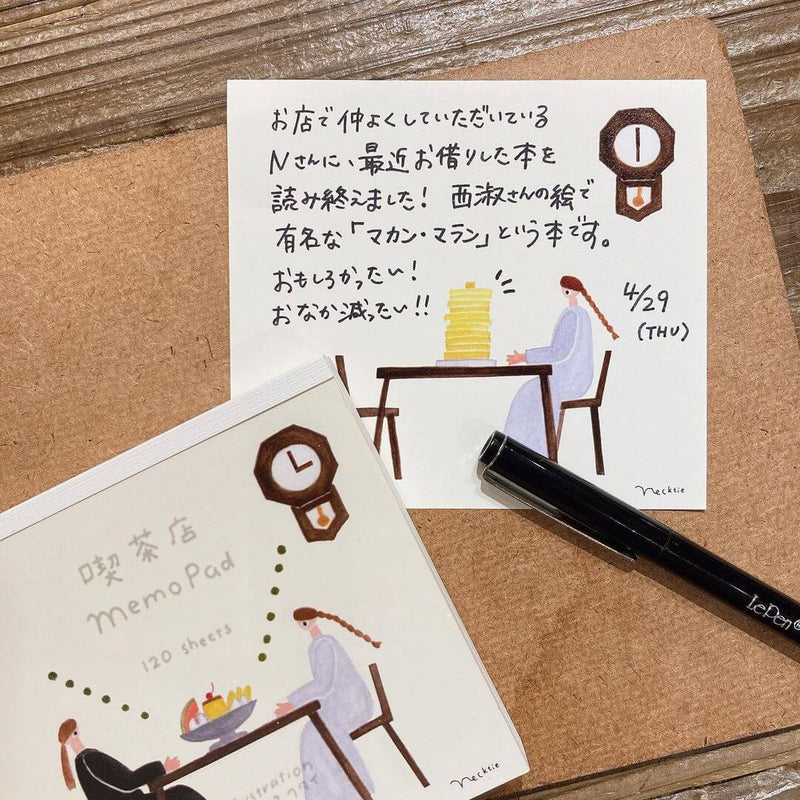 お店で仲よくしていただいている
Nさんに、最近お借りした本を
読み終えました! 西淑さんの絵で
有名な「マカン・マラン」という本です。
おもしろかったい!
おなか減ったい!!
4/29
(THU)
necktie
LePen
喫茶店
memo Pad
120 sheers
necktie